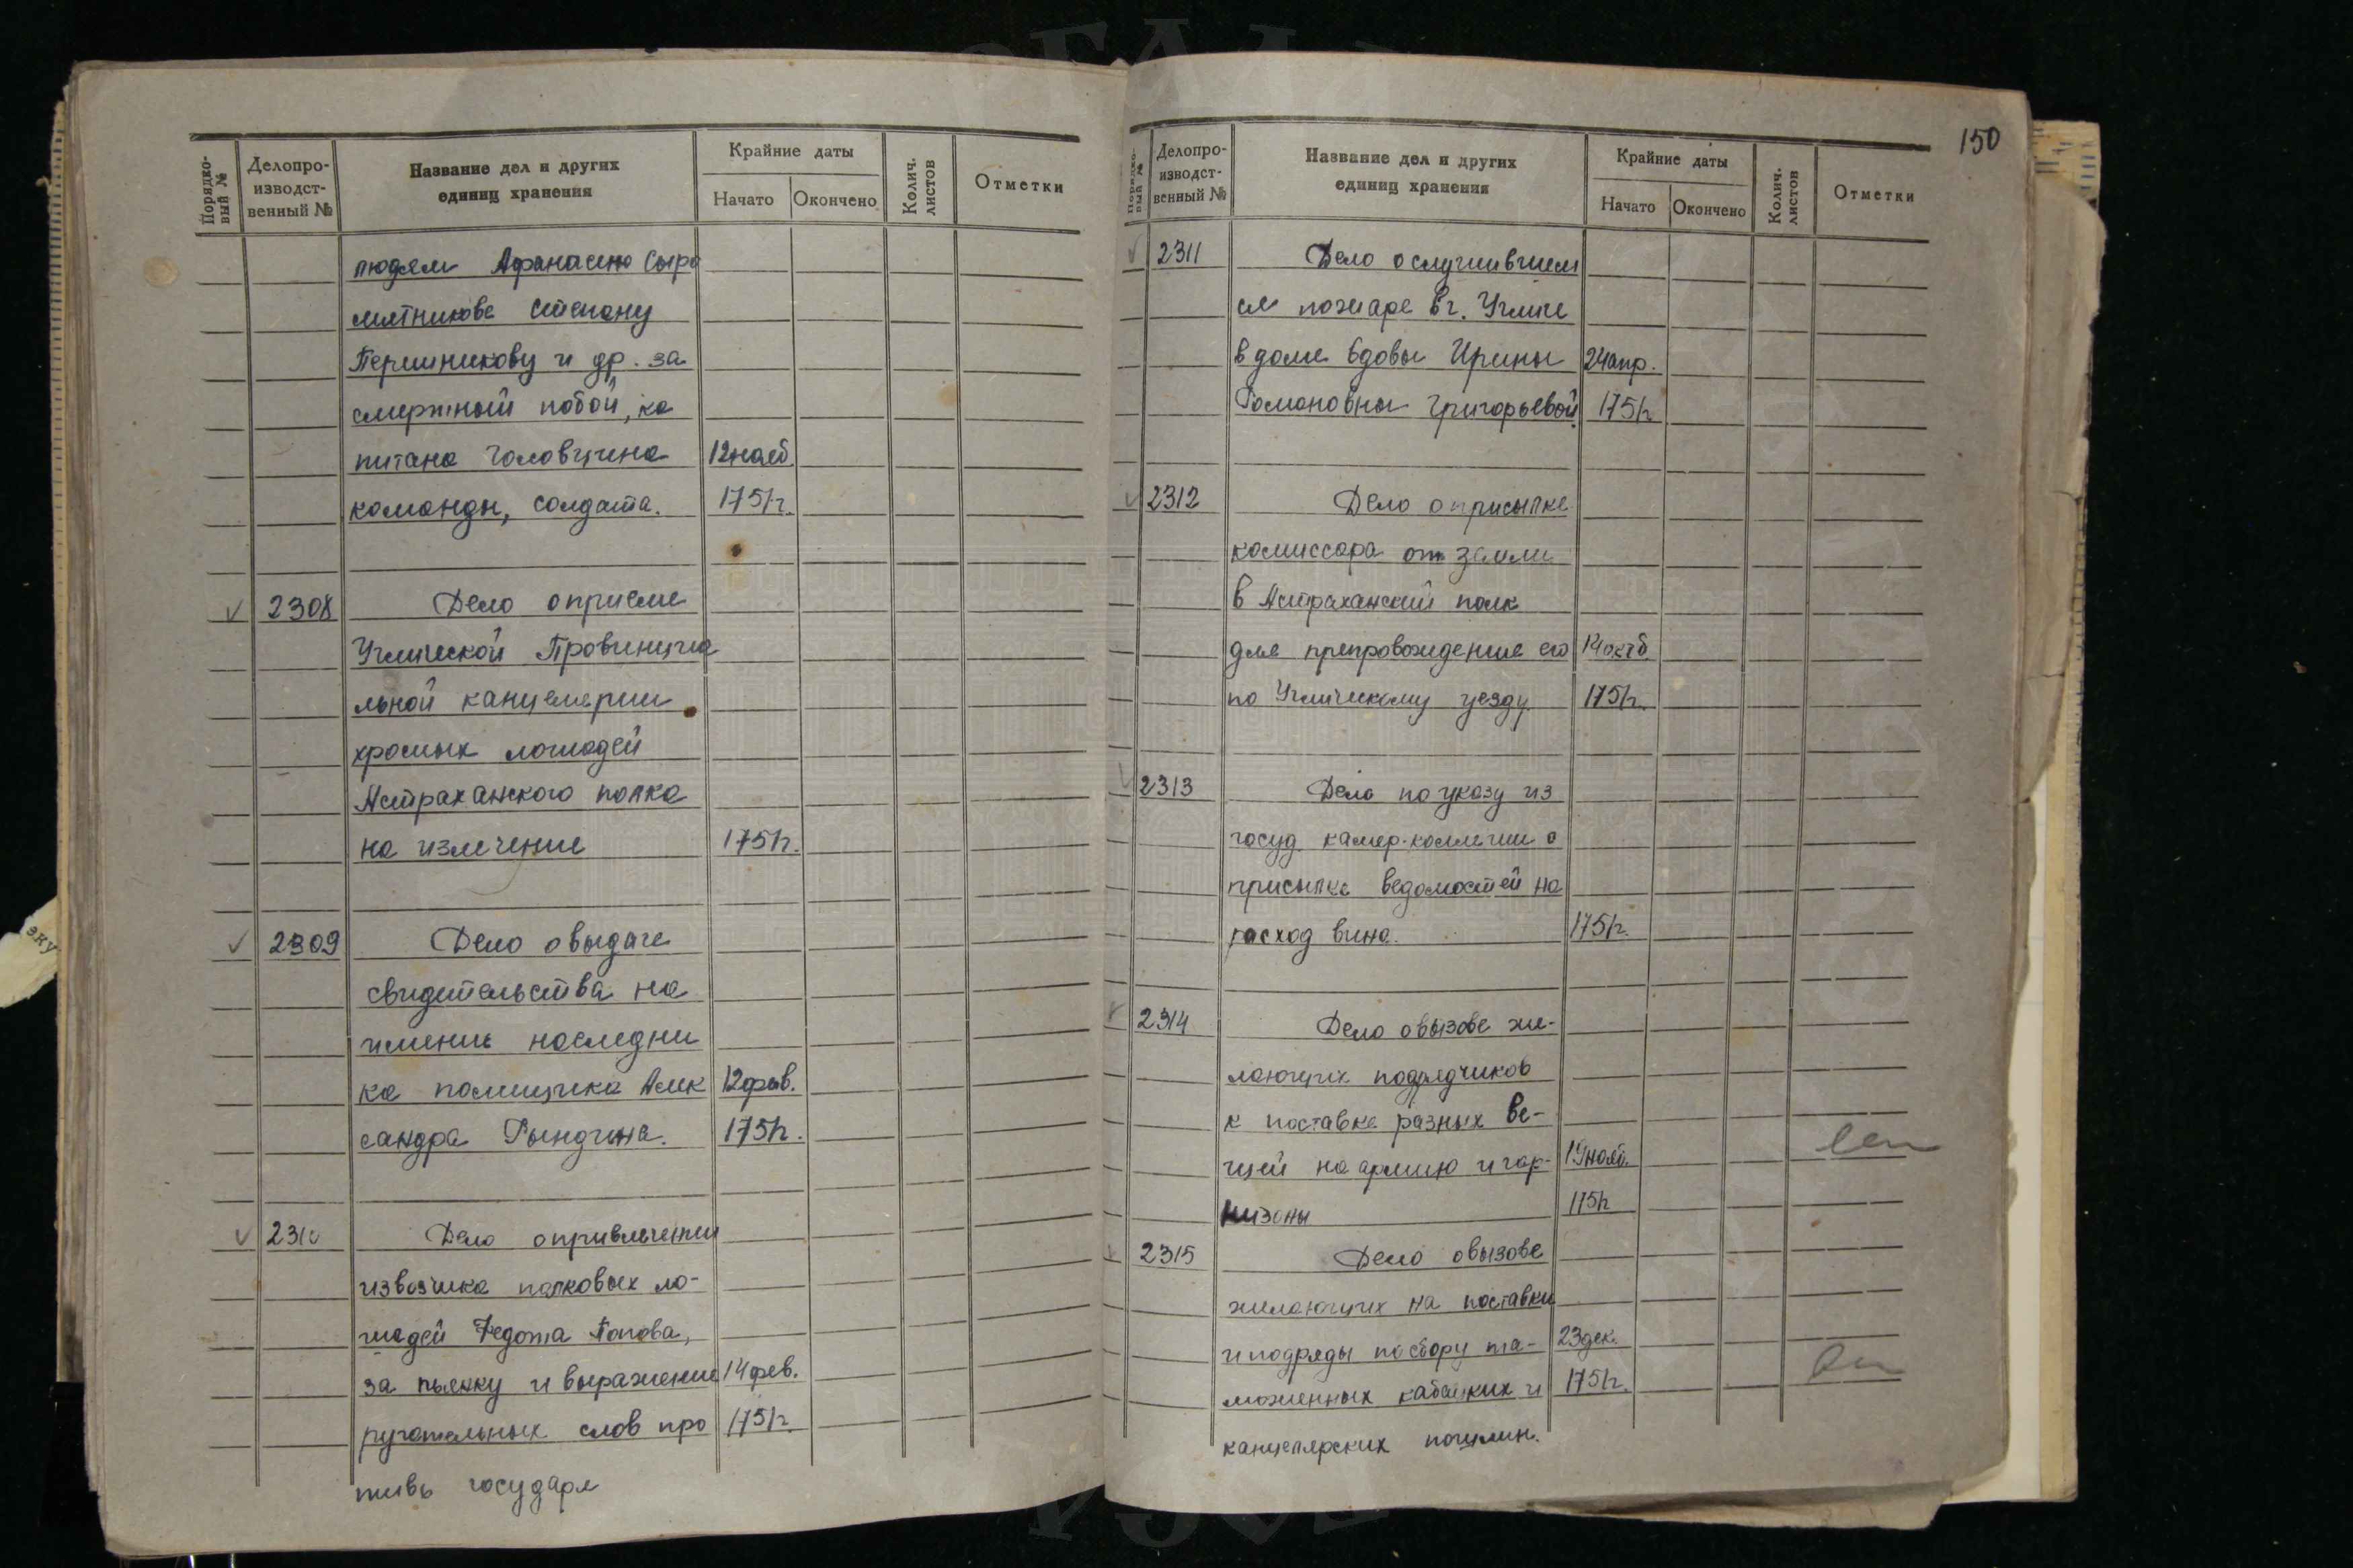 Порядко-
вый №
Делопро-
изводст-
венный №
Название дел и других
единиц хранения
Крайние даты
Начато
Окончено
Колич.
листов
Отметки
людям Афанасию Сыро
мятникове Степану
и др. за
смертный побой, ка
питана Головцина 12нояб.
команды, солдата. 1751г.
2308 Дело о приеме
Угличской Провинциа
льной канцелярии
хромых лошадей
Астраханского полка
на излечение 1751г.
2309 Дело о выдаче
свидетельства на
имение наследни
ка помещика Алек 12фев.
сандра Рындина. 1751г.
2310 Дело о привлечении
извозчика полковых ло-
шадей Федота Попова,
за пьянку и выражение 14фев.
ругательных слов про 1751г.
тивь государя
150
Порядко-
вый №
Делопро-
изводст-
венный №
Название дел и других
единиц хранения
Крайние даты
Начато
Окончено
Колич.
листов
Отметки
2311 Дело о случившем
ся пожаре в г. Угличе
в доме вдовы Ирины 24апр.
Романовны Григорьевой 1751г.
2312 Дело о присылке
комиссара от земли
в Астраханский полк
для препровождение его 14октб.
по Угличскому уезду. 1751г.
2313 Дело по указу из
госуд. камер-коллегии о
присылке ведомостей на
расход вина. 1751г.
2314 Дело о вызове же-
лающих подрядчиков
к поставке разных ве-
щей на армию и гар- 19нояб.
низоны 1751г
2315 Дело о вызове
желающих на поставки
и подряды по сбору та- 23дек.
моженных кабацких и 1751г.
канцелярских пошлин.
эку